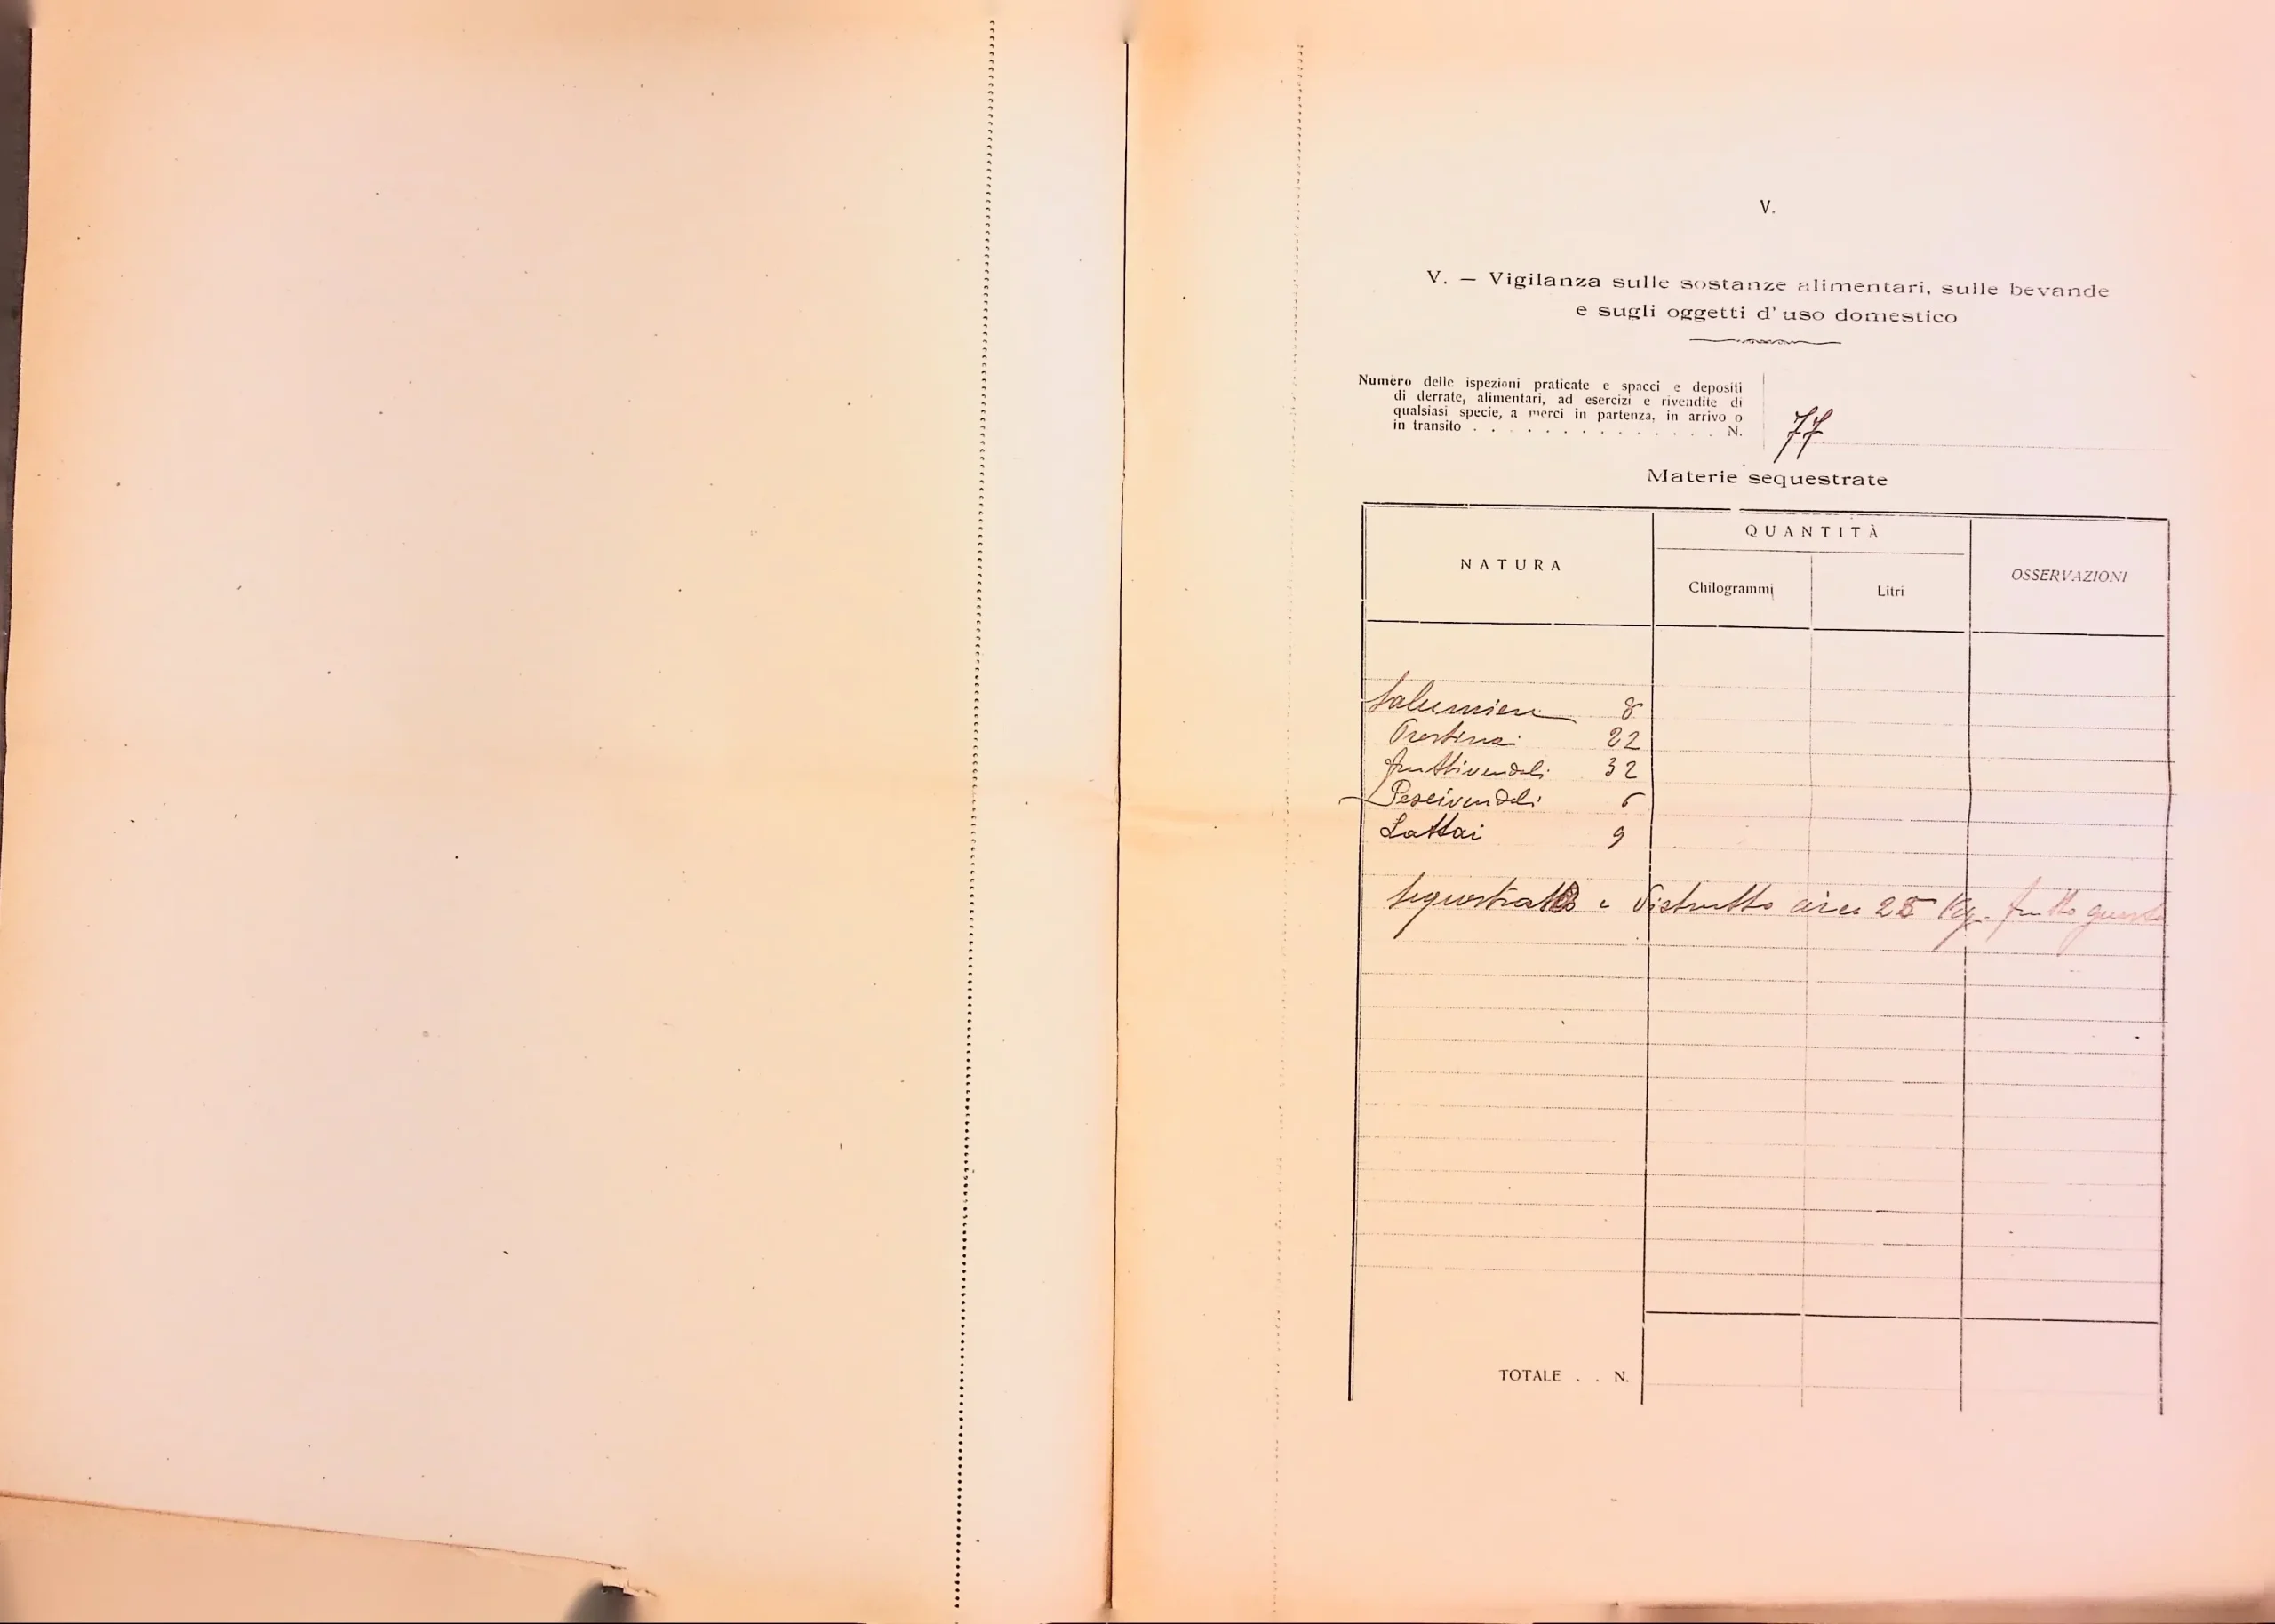 V.
V. — Vigilanza sulle sostanze alimentari, sulle bevande
e sugli oggetti d'uso domestico
Numero delle ispezioni praticate e spacci e depositi
di derrate, alimentari, ad esercizi e rivendite di
qualsiasi specie, a merci in partenza, in arrivo o
in transito . . . . . . . . . . . . . . N.
77
Materie sequestrate
NATURA
QUANTITÀ
Chilogrammi
Litri
OSSERVAZIONI
Salumieri 8
Prestinai 22
fruttivendoli 32
Pescivendoli 6
Lattai 9
Sequestrato e distrutto circa 25 Kg. frutta guasta
TOTALE . . N.